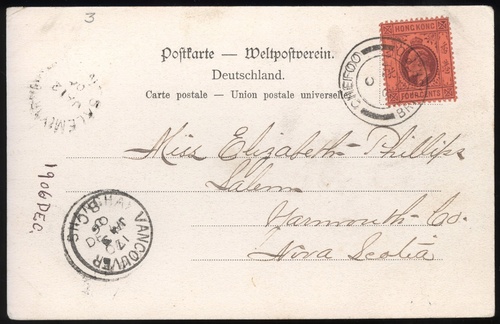 3
Postkarte — Weltpostverein.
Deutschland.
Carte postale — Union postale universelle
HONGKONG
FOUR CENTS
CHEFOO
BR
SALEM
Miss Elizabeth Phillips
Salem
Yarmouth Co.
Nova Scotia
1906 DEC.
VANCOUVER
B.C.